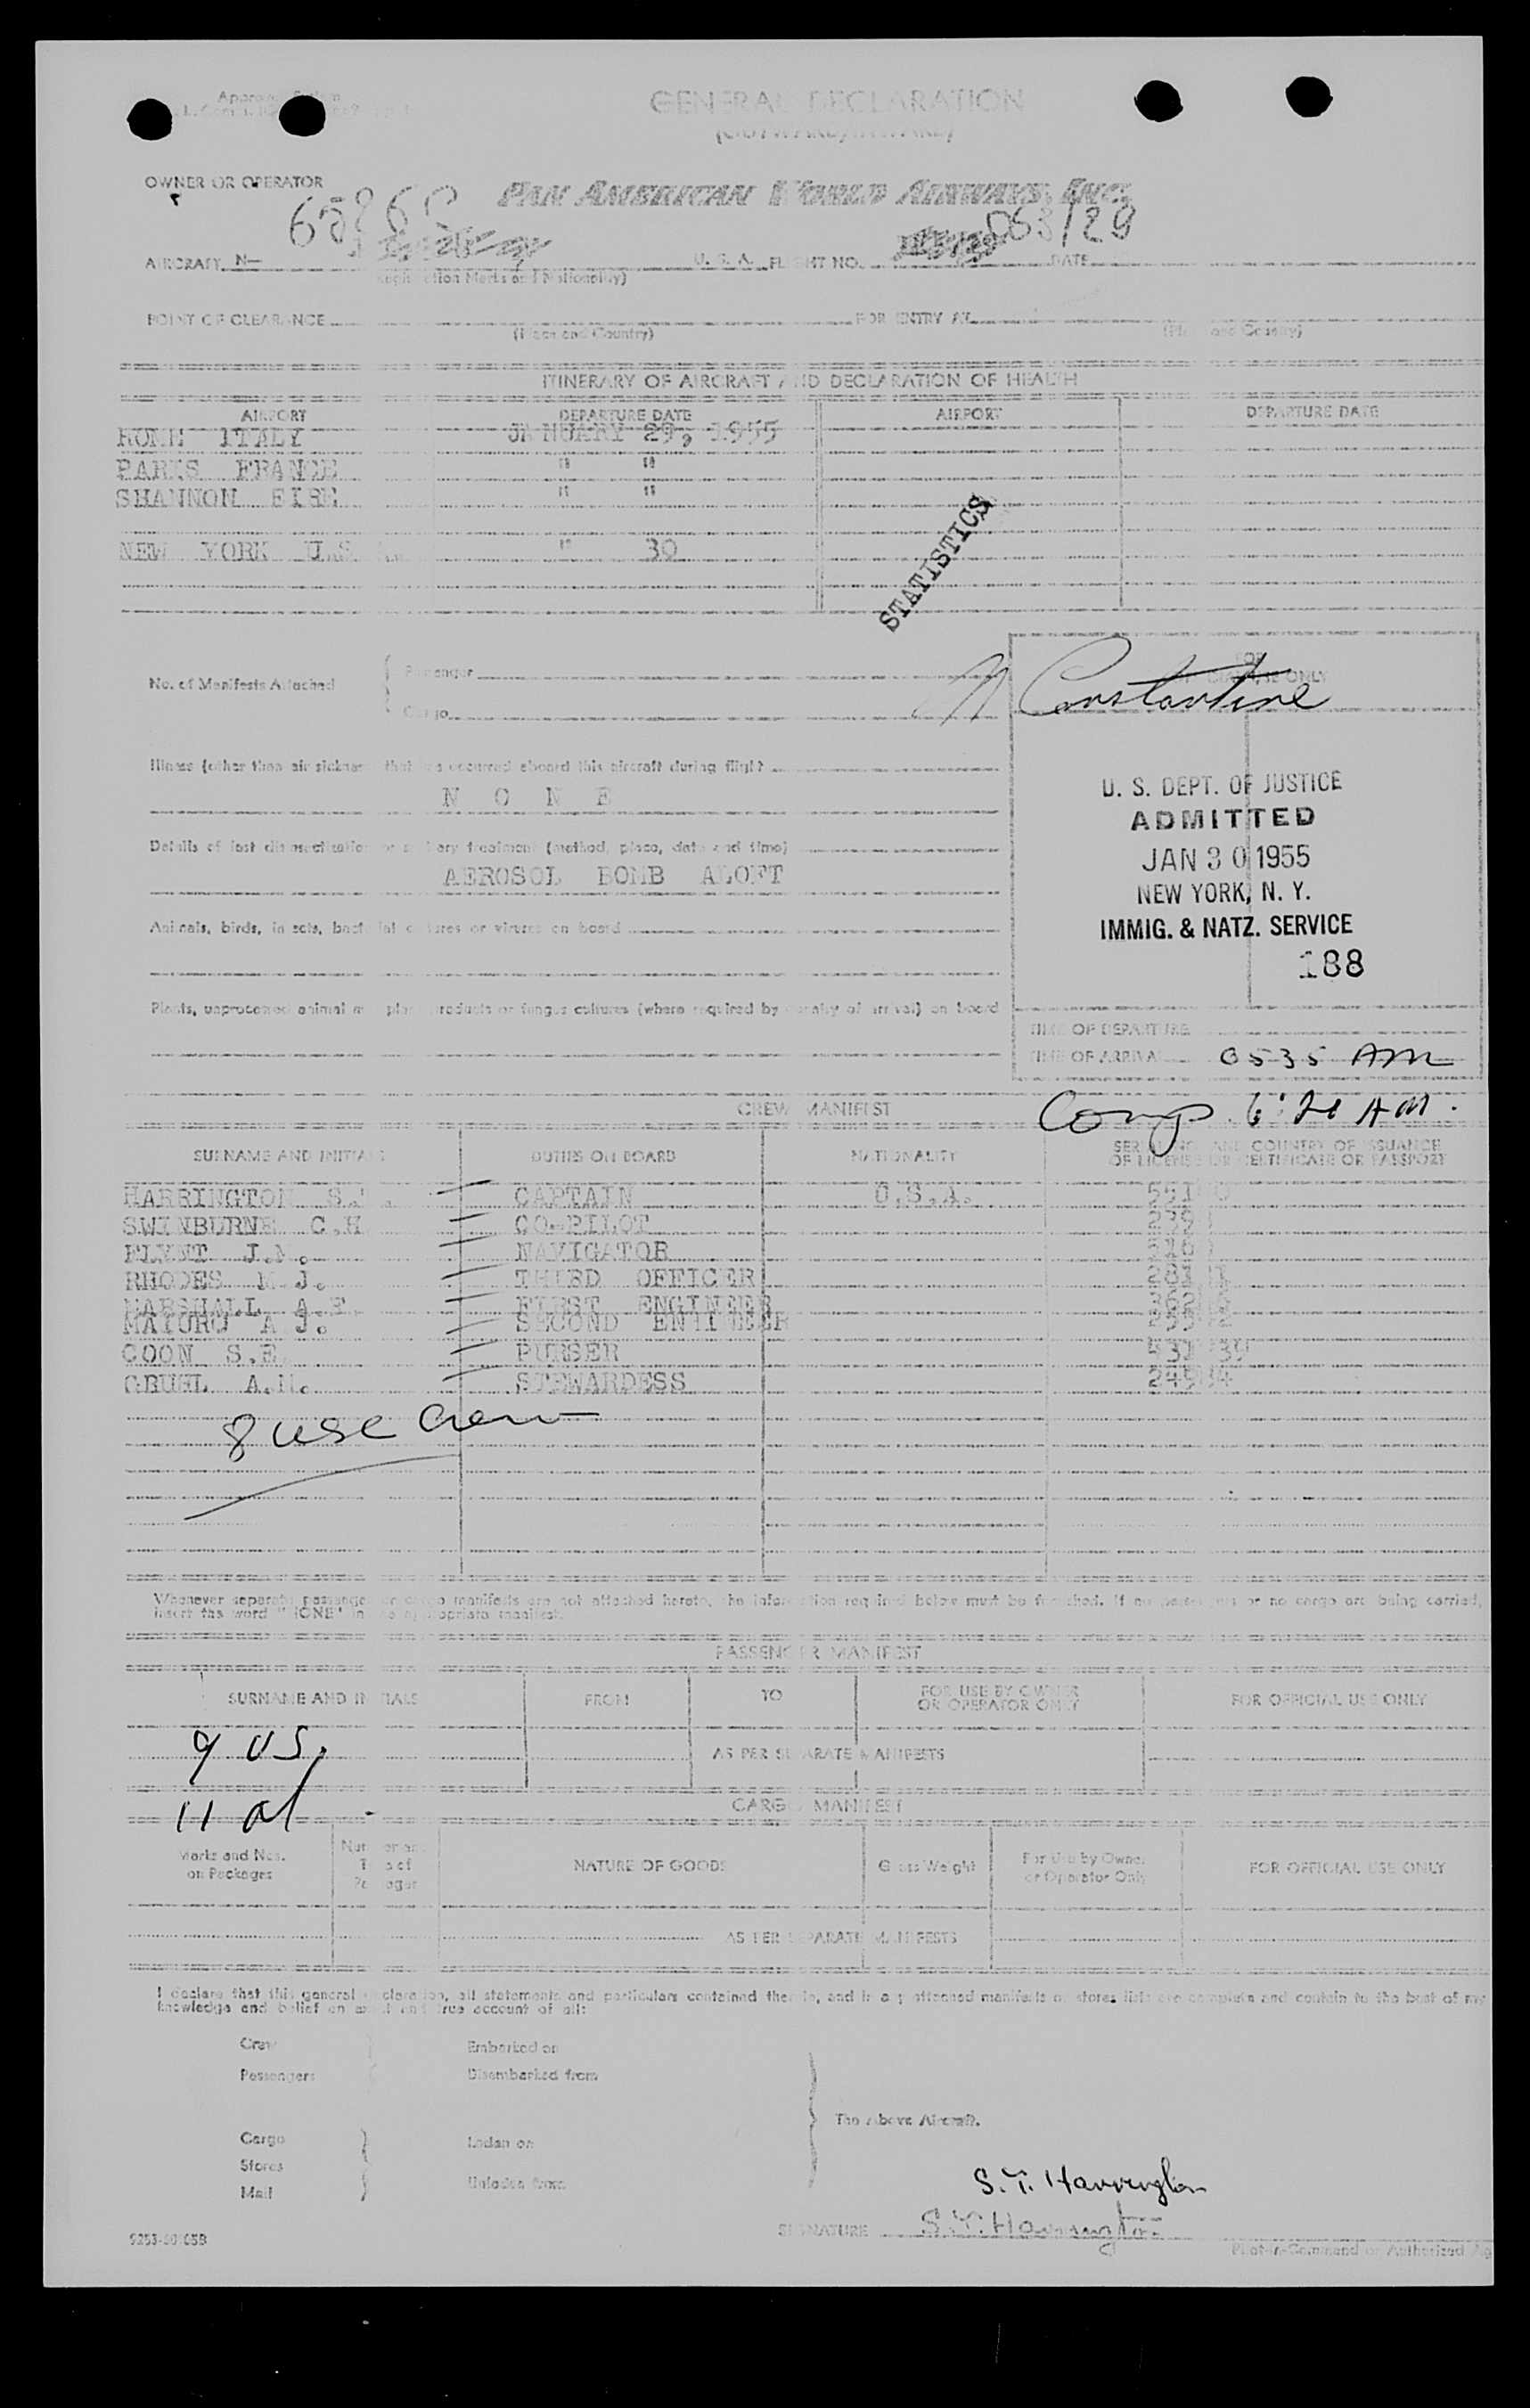 GENERAL DECLARATION
(OUTWARD/INWARD)
OWNER OR OPERATOR
PAN AMERICAN WORLD AIRWAYS, INC.
AIRCRAFT N— U. S. A. FLIGHT NO. 063/29 DATE
(Registration Marks and Nationality)
POINT OF CLEARANCE FOR ENTRY AT
(Place and Country) (Place and Country)
ITINERARY OF AIRCRAFT AND DECLARATION OF HEALTH
AIRPORT DEPARTURE DATE AIRPORT DEPARTURE DATE
ROME ITALY JANUARY 29, 1955
PARIS FRANCE " "
SHANNON EIRE " "
STATISTICS
NEW YORK U.S. " 30
No. of Manifests Attached
Passenger
Cargo
FOR OFFICIAL USE ONLY
N Constantine
Illness (other than air sickness) that has occurred aboard this aircraft during flight
N O N E
Details of last disinsectization or sanitary treatment (method, place, date and time)
AEROSOL BOMB ALOFT
Animals, birds, insects, bacterial cultures or viruses on board
Plants, unprocessed animal or plant products or fungus cultures (where required by country of arrival) on board
U. S. DEPT. OF JUSTICE
ADMITTED
JAN 30 1955
NEW YORK, N. Y.
IMMIG. & NATZ. SERVICE
188
TIME OF DEPARTURE
TIME OF ARRIVAL 0535 AM
Comp. 6:20 AM.
CREW MANIFEST
SURNAME AND INITIALS DUTIES ON BOARD NATIONALITY SERIAL NO. AND COUNTRY OF ISSUANCE
OF LICENSE OR CERTIFICATE OR PASSPORT
HARRINGTON S.T. CAPTAIN U.S.A.
SWINBURNE C.H. CO-PILOT
FLYNT J.M. NAVIGATOR
RHODES M.J. THIRD OFFICER
MARSHALL A.E. FIRST ENGINEER
MAIORG A J. SECOND ENGINEER
COON S.E. PURSER
GRUHL A.M. STEWARDESS
8 USC Crew
Whenever separate passenger or cargo manifests are not attached hereto, the information required below must be furnished. If no passengers or no cargo are being carried,
insert the word "NONE" in the appropriate manifest.
PASSENGER MANIFEST
SURNAME AND INITIALS FROM TO FOR USE BY OWNER
OR OPERATOR ONLY FOR OFFICIAL USE ONLY
9 US.
AS PER SEPARATE MANIFESTS
11 al
CARGO MANIFEST
Marks and Nos.
on Packages
Number and
Type of
Packages
NATURE OF GOODS
Gross Weight
For Use by Owner
or Operator Only
FOR OFFICIAL USE ONLY
AS PER SEPARATE MANIFESTS
I declare that this general declaration, all statements and particulars contained therein, and in any attached manifests or stores lists are complete and contain to the best of my
knowledge and belief an exact and true account of all:
Crew Embarked on
Passengers Disembarked from
The Above Aircraft.
Cargo Laden on
Stores
Mail Unladen from
S. T. Harrington
SIGNATURE S. T. Harrington
Pilot-in-Command or Authorized Ag